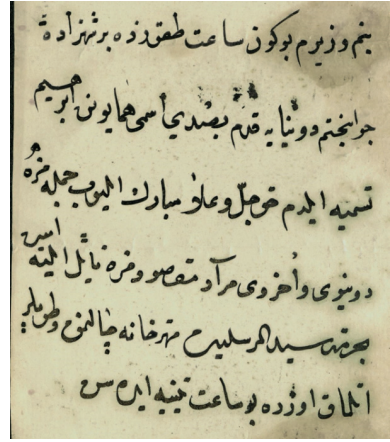 بنم وزيرم بوكون ساعت طقوزده بر شهزادهٔ
جوانبختم دونيايه قدم بصدي اسمى همايونن ابرهيم
تسميه ايلدم حق جل وعلا مبارك ايليوب جمله مزه
دونيوى واخروى مراد مقصودمزه نائل ايليه امين
بحرمة سيد المرسلين مهترخانه چالنوب وطوپلر
اتلمق اوزره بو ساعت تنبيه ايده سن